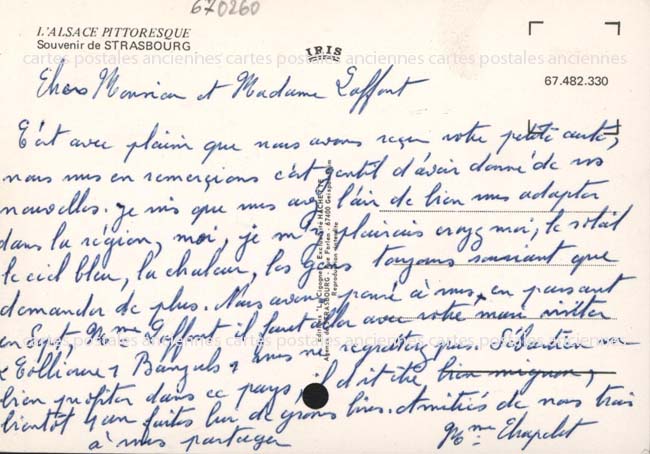 670260
L'ALSACE PITTORESQUE
Souvenir de STRASBOURG
IRIS
67.482.330
cartes postales anciennes cartes postales anciennes cartes postales anciennes
Chers Monsieur et Madame Laffont
C'est avec plaisir que nous avons reçu votre petite carte,
nous vous en remerçions c'est gentil d'avoir donné de vos
nouvelles. je vois que vous avez l'air de bien vous adapter
dans la région, moi, je m'y plairais croyez moi, le soleil
le ciel bleu, la chaleur, les gens toujours souriant que
demander de plus. Nous avons pensé à vous, en passant
en Mme Laffont il faut aller avec votre mari visiter
Collioure, Banyuls, vous ne regretterez pas. Sébastien
bien profiter dans ce pays, il doit être bien mignon,
bientôt faites lui de grosses bises. Amitiés de nous trois
à vous partager Mme Chapelet
Editions "La Cigogne" - Exclusivité HACHETTE
Reproduction interdite